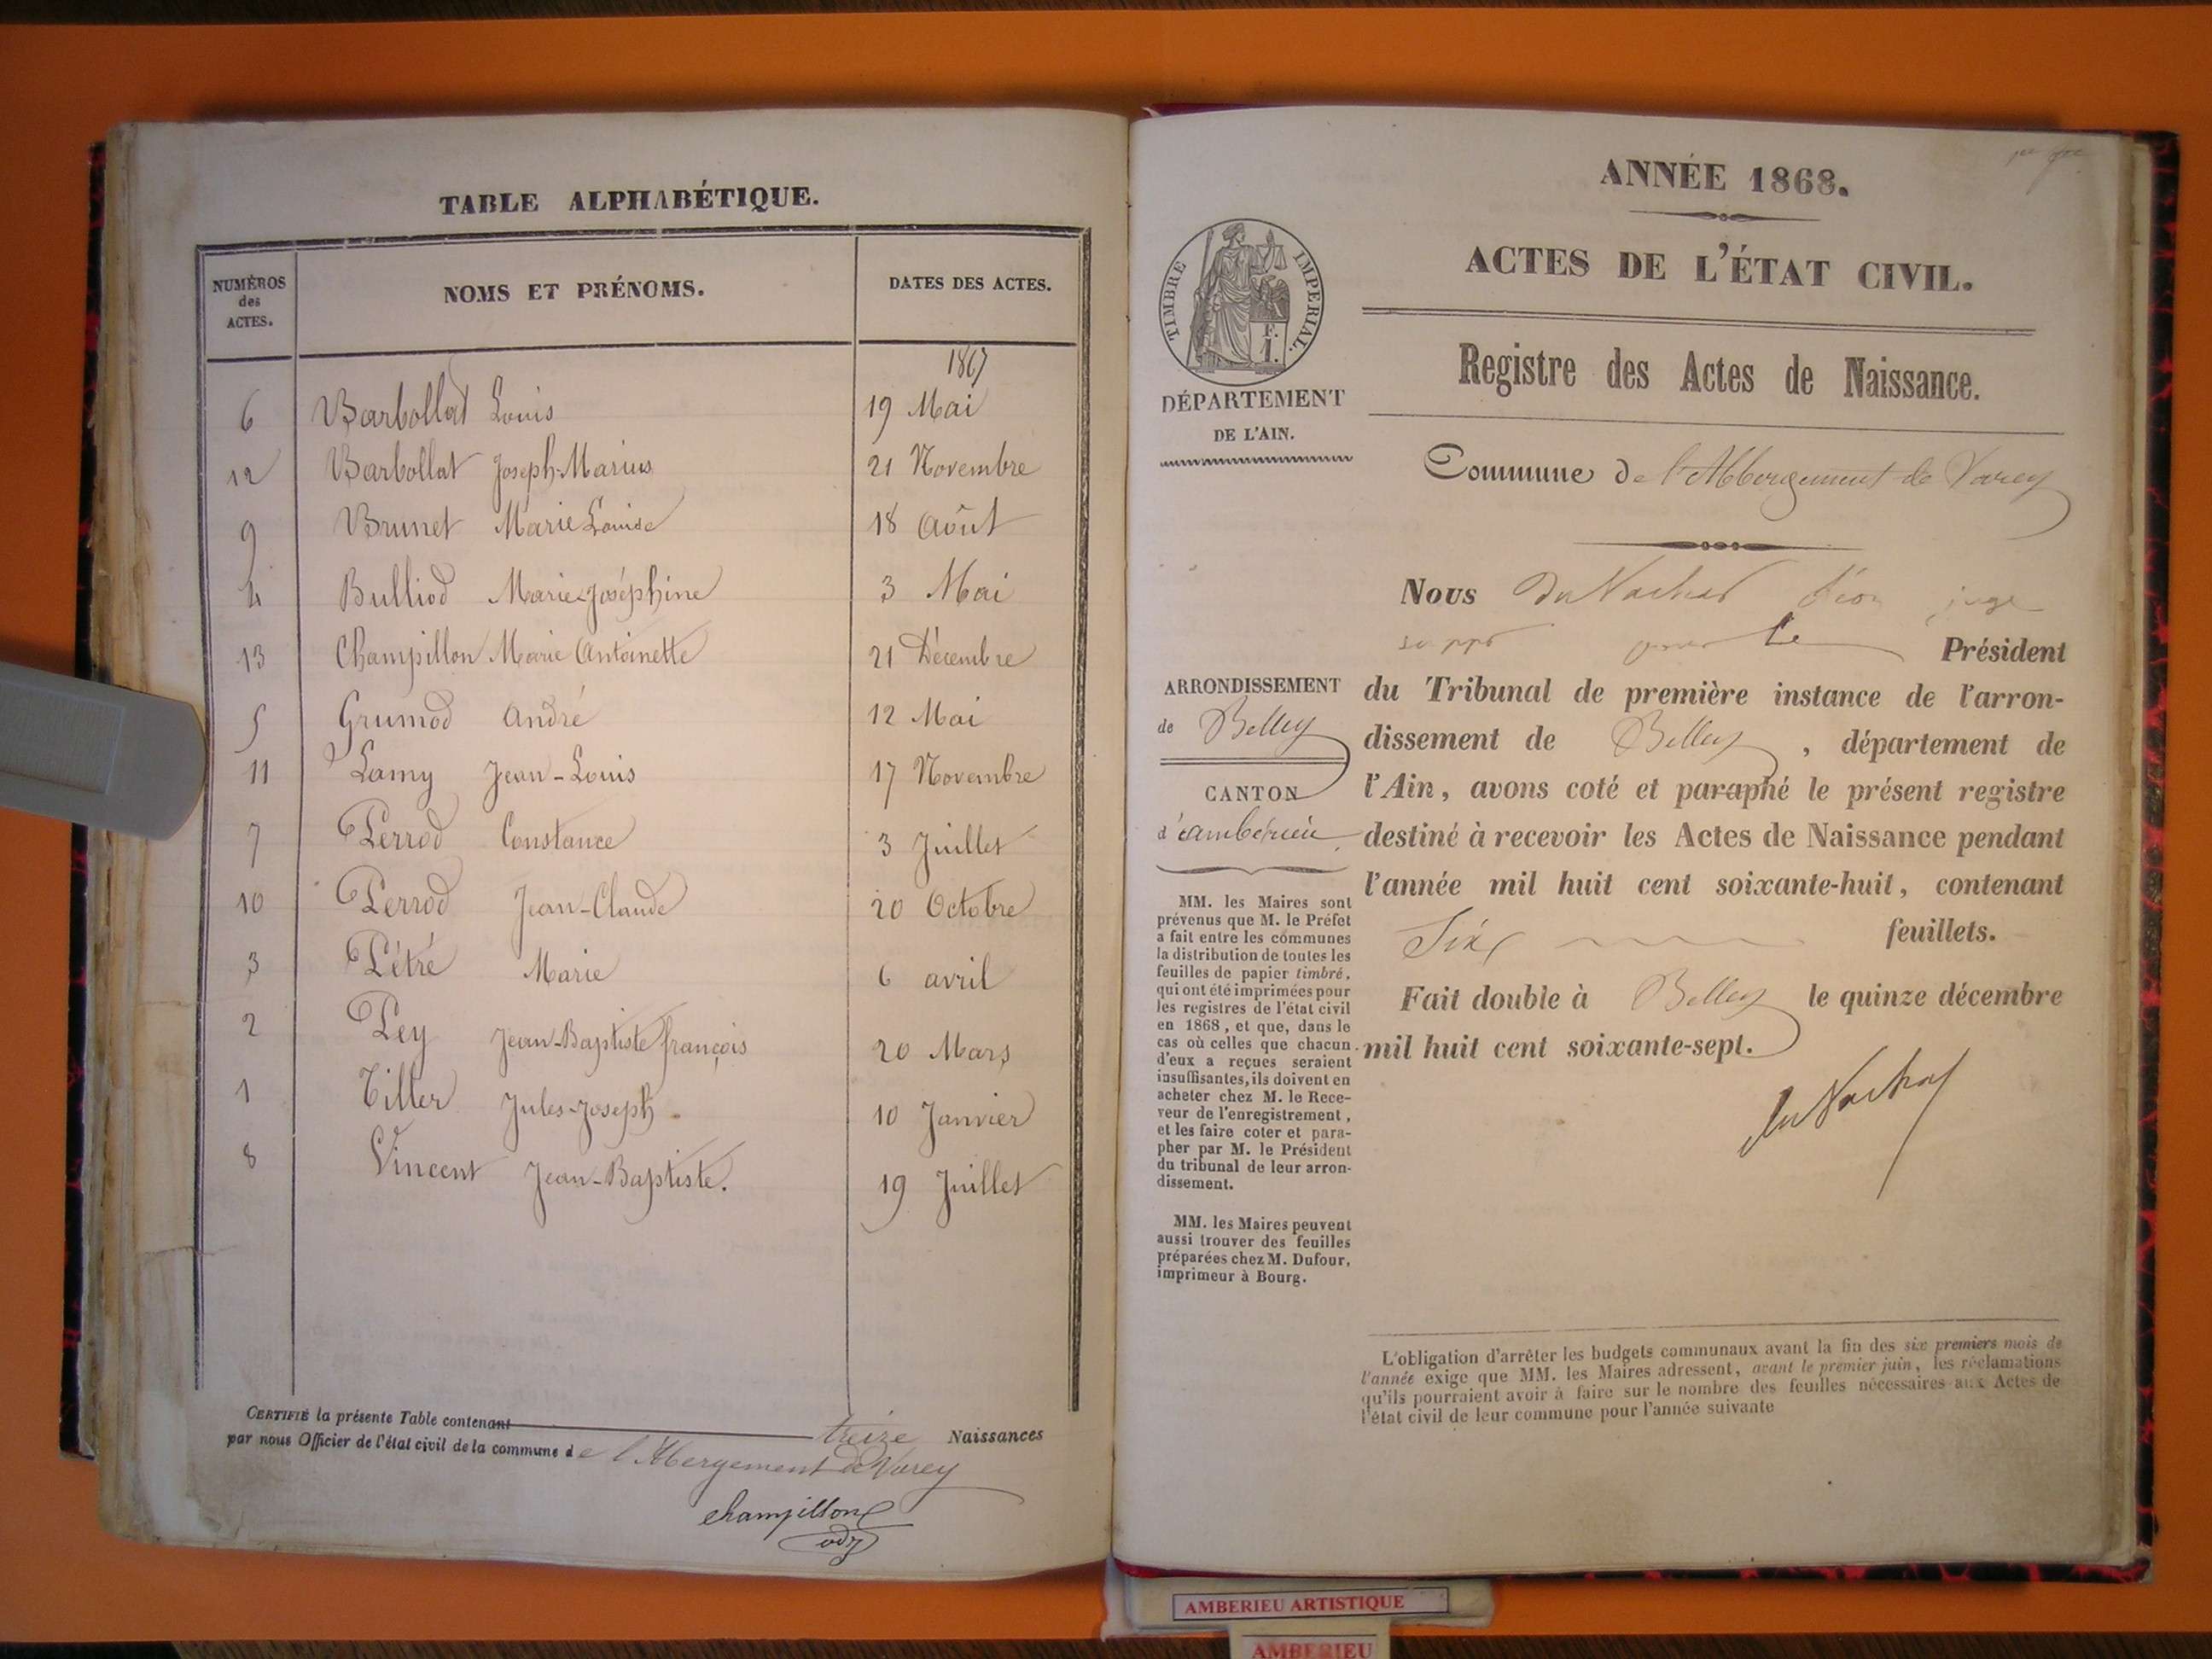 TABLE ALPHABÉTIQUE.
NUMÉROS des ACTES. NOMS ET PRÉNOMS. DATES DES ACTES.
1867
6 Barbollat Louis 19 Mai
12 Barbollat Joseph-Marius 21 Novembre
9 Brunet Marie Louise 18 Août
4 Bulliod Marie-Joséphine 3 Mai
13 Champillon Marie Antoinette 21 Décembre
5 Grumod André 12 Mai
11 Lamy Jean-Louis 17 Novembre
7 Perrod Constance 3 Juillet
10 Perrod Jean-Claude 20 Octobre
3 Pétré Marie 6 avril
2 Pey Jean-Baptiste françois 20 Mars
1 Tiller Jules-Joseph 10 Janvier
8 Vincent Jean-Baptiste. 19 Juillet
CERTIFIÉ la présente Table contenant treize Naissances
par nous Officier de l'état civil de la commune de l'Abergement de Varey
Champillon
adj
ANNÉE 1868.
ACTES DE L'ÉTAT CIVIL.
TIMBRE IMPERIAL.
F.
1.
DÉPARTEMENT
DE L'AIN.
Registre des Actes de Naissance.
Commune de l'Abbergement de Varey
Nous Léon juge
Président
du Tribunal de première instance de l'arron-
dissement de Belley, département de
l'Ain, avons coté et paraphé le présent registre
destiné à recevoir les Actes de Naissance pendant
l'année mil huit cent soixante-huit, contenant
Six feuillets.
Fait double à Belley le quinze décembre
mil huit cent soixante-sept.
ARRONDISSEMENT
de Belley
CANTON
d'ambérieu
MM. les Maires sont
prévenus que M. le Préfet
a fait entre les communes
la distribution de toutes les
feuilles de papier timbré,
qui ont été imprimées pour
les registres de l'état civil
en 1868, et que, dans le
cas où celles que chacun
d'eux a reçues seraient
insuffisantes, ils doivent en
acheter chez M. le Rece-
veur de l'enregistrement,
et les faire coter et para-
pher par M. le Président
du tribunal de leur arron-
dissement.
MM. les Maires peuvent
aussi trouver des feuilles
préparées chez M. Dufour,
imprimeur à Bourg.
L'obligation d'arrêter les budgets communaux avant la fin des six premiers mois de
l'année exige que MM. les Maires adressent, avant le premier juin, les réclamations
qu'ils pourraient avoir à faire sur le nombre des feuilles nécessaires aux Actes de
l'état civil de leur commune pour l'année suivante
AMBERIEU ARTISTIQUE
AMBERIEU